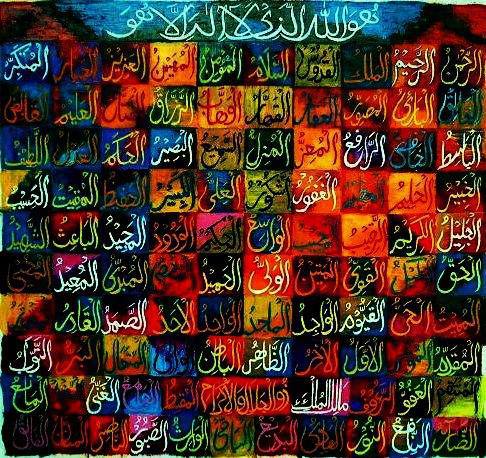 هو الله الذي لا إله إلا هو
الرحمن الرحيم الملك القدوس السلام المؤمن المهيمن العزيز الجبار المتكبر
الخالق البارئ المصور الغفار القهار الوهاب الرزاق الفتاح العليم القابض
الباسط الخافض الرافع المعز المذل السميع البصير الحكم العدل اللطيف
الخبير الحليم العظيم الغفور الشكور العلي الكبير الحفيظ المقيت الحسيب
الجليل الكريم الرقيب المجيب الواسع الحكيم الودود المجيد الباعث الشهيد
الحق الوكيل القوي المتين الولي الحميد المحصي المبدئ المعيد المحيي
المميت الحي القيوم الواجد الماجد الواحد الأحد الصمد القادر
المقدم المؤخر الأول الآخر الظاهر الباطن الوالي المتعال البر التواب
المنتقم العفو الرؤوف مالك الملك ذو الجلال والإكرام المقسط الجامع الغني المانع
الضار النافع النور الهادي البديع الباقي الوارث الصبور